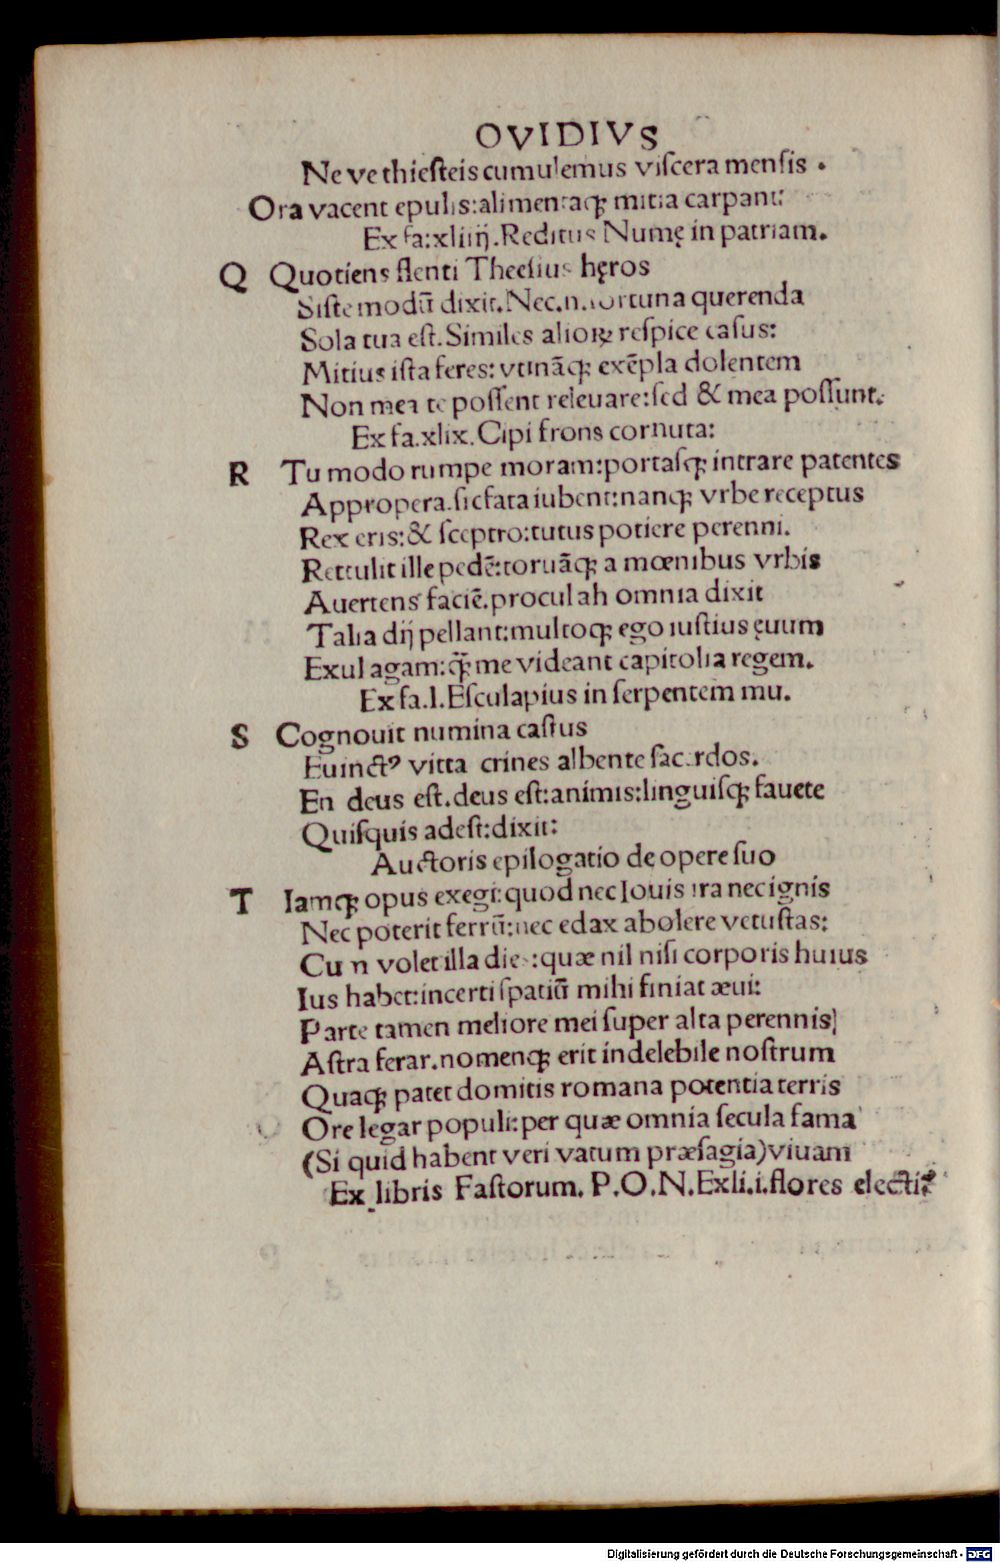 OVIDIVS
Ne ve thieſteis cumulemus viſcera menſis .
Ora vacent epulis:alimentaqꝫ mitia carpant:
Ex fa:xliiij.Reditus Numę in patriam.
Q Quotiens flenti Theſius hęros
Siſte modū dixit.Nec.n.fortuna querenda
Sola tua eſt.Similes alioꝝ reſpice caſus:
Mitius iſta feres: vtināqꝫ exēpla dolentem
Non mea te poſſent releuare:ſed & mea poſſunt.
Ex fa.xlix.Cipi frons cornuta:
R Tu modo rumpe moram:portaſqꝫ intrare patentes
Appropera.ſic fata iubent:nanqꝫ vrbe receptus
Rex eris:& ſceptro:tutus potiere perenni.
Rettulit ille pedē:toruāqꝫ a mœnibus vrbis
Auertens faciē.procul ah omnia dixit
Talia dij pellant:multoqꝫ ego iuſtius ęuum
Exul agam:q̄ꝫ me videant capitolia regem.
Ex fa.l.Eſculapius in ſerpentem mu.
S Cognouit numina caſtus
Euinctꝰ vitta crines albente ſacerdos.
En deus eſt.deus eſt:animis:linguiſqꝫ fauete
Quiſquis adeſt:dixit:
Auctoris epilogatio de opere ſuo
T Iamqꝫ opus exegi:quod nec Iouis ira nec ignis
Nec poterit ferrū:nec edax abolere vetuſtas:
Cum volet illa dies:quæ nil niſi corporis huius
Ius habet:incerti ſpatiū mihi finiat æui:
Parte tamen meliore mei ſuper alta perennis
Aſtra ferar.nomenqꝫ erit indelebile noſtrum
Quaqꝫ patet domitis romana potentia terris
Ore legar populi:per quæ omnia ſecula fama
(Si quid habent veri vatum præſagia)viuam
Ex libris Faſtorum. P.O.N.Exli.i.flores electi
Digitalisierung gefördert durch die Deutsche Forschungsgemeinschaft - DFG